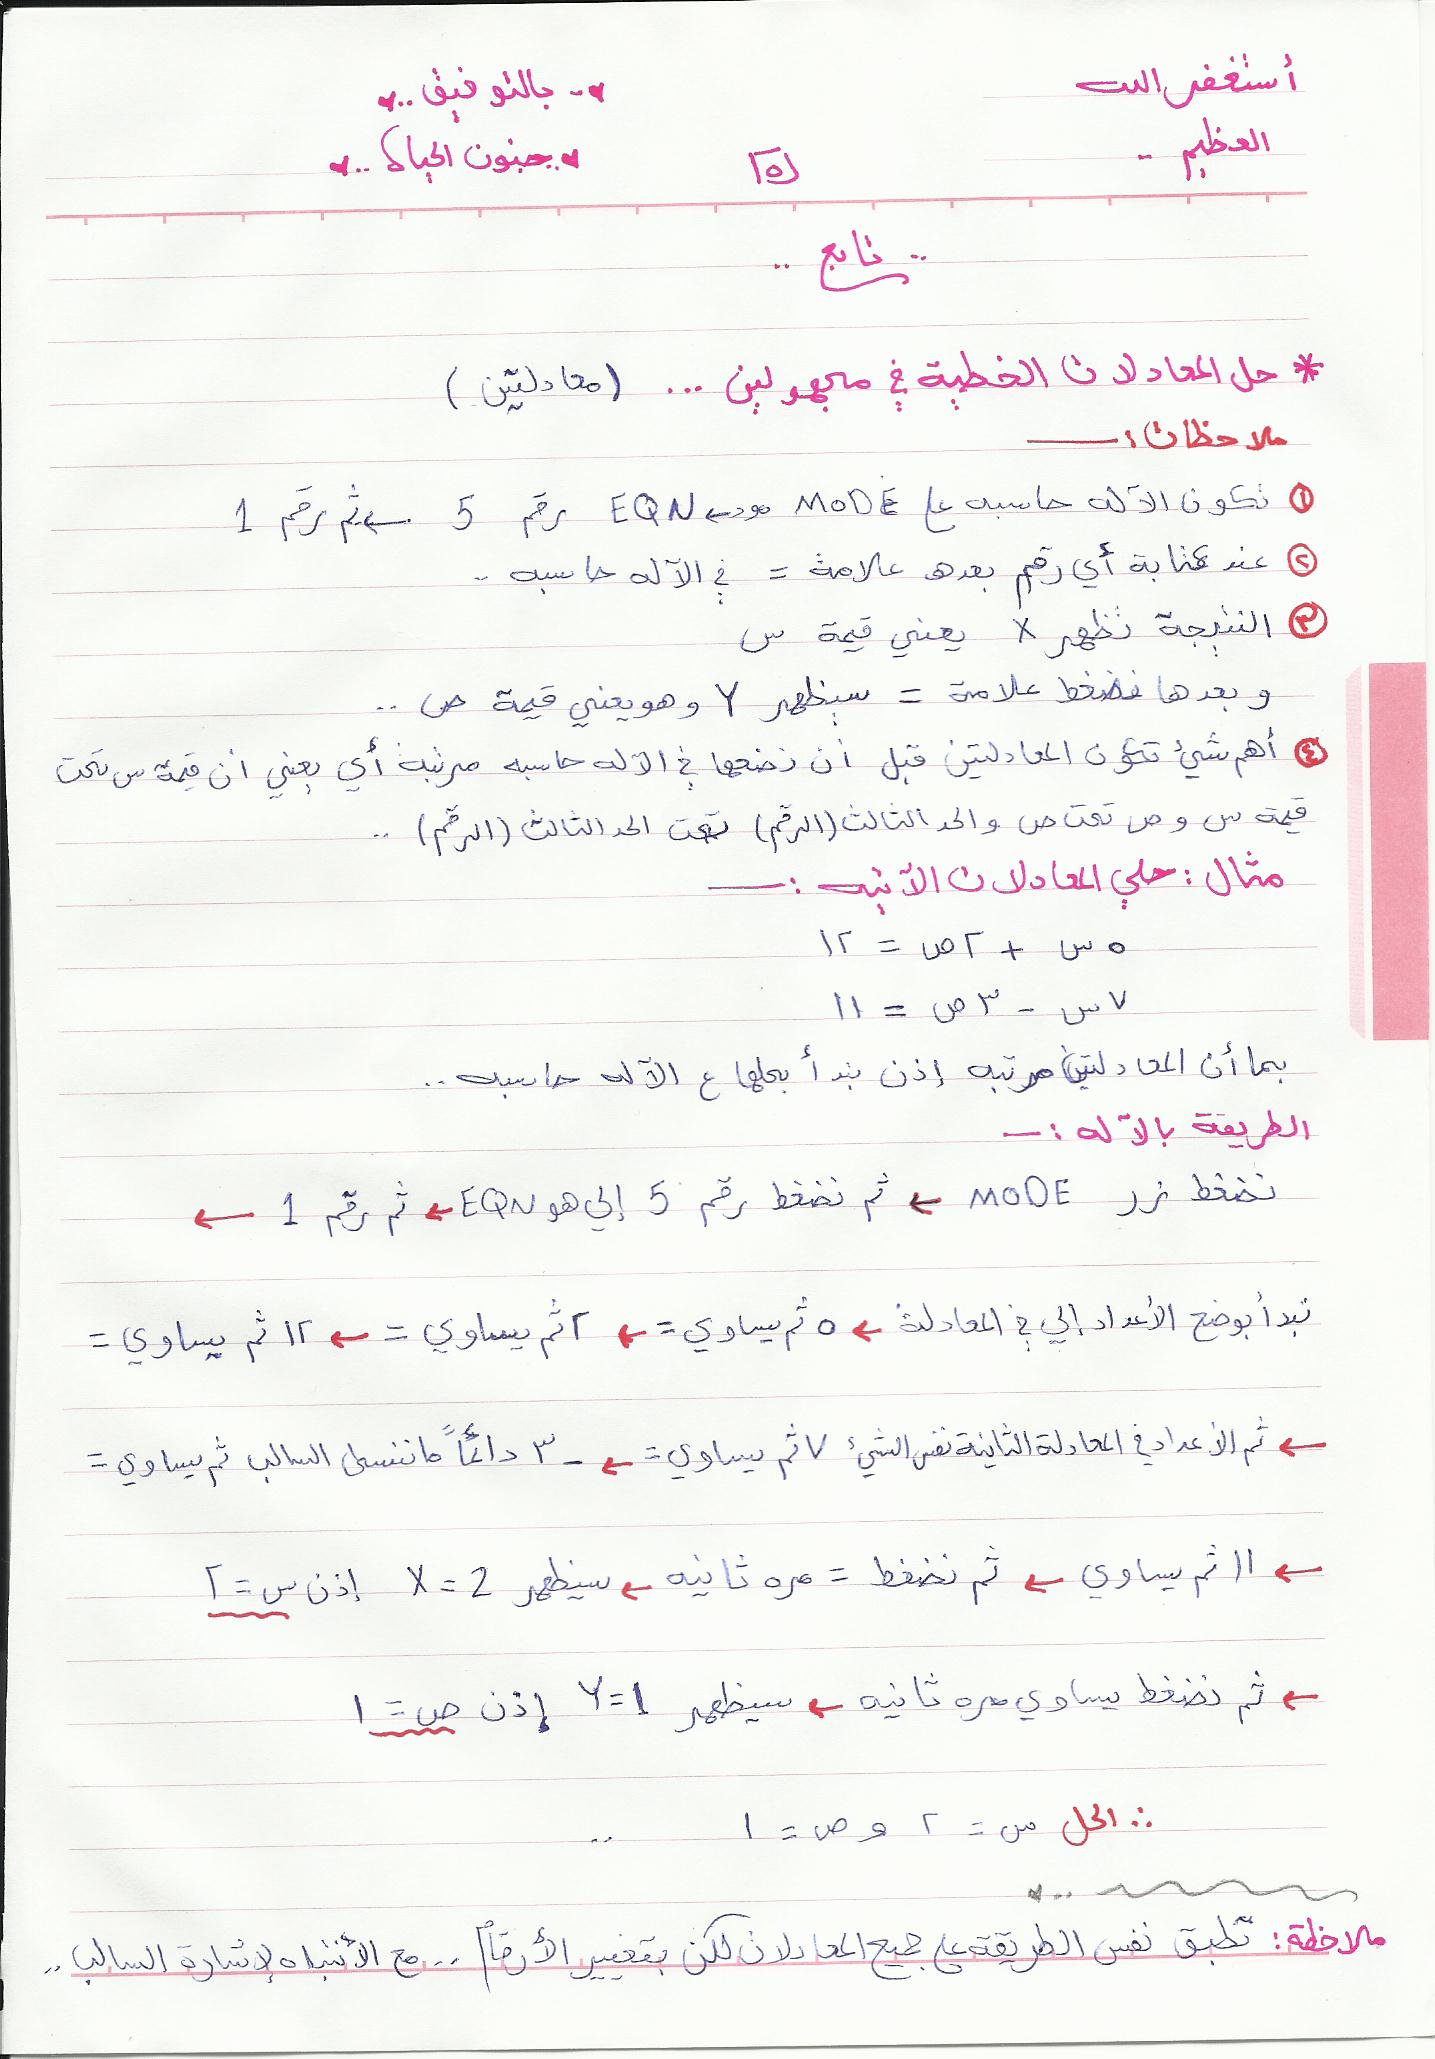 أستغفر الله
العظيم ..
..بالتوفيق..
..جنون الحياة..
١٥
.. تابع ..
* حل المعادلات الخطية في مجهولين ... (معادلتين)
ملاحظات:
١ تكون الآله حاسبه على MODE مود ← EQN رقم 5 ← ثم رقم 1
٢ عند كتابة أي رقم بعدها علامة = في الآله حاسبه ..
٣ النتيجة تظهر X يعني قيمة س
وبعدها نضغط علامة = سيظهر Y وهو يعني قيمة ص ..
٤ أهم شيئ تكون المعادلتين قبل أن نضعها في الآله حاسبه مرتبة أي يعني ان قيمة س تحت
قيمة س و ص تحت ص والحد الثالث (الرقم) تحت الحد الثالث (الرقم) ..
مثال : حلي المعادلات الآتيه :ـ
٥س + ٢ص = ١٢
٧س - ٣ص = ١١
بما أن المعادلتين مرتبه إذن نبدأ بحلها ع الآله حاسبه ..
الطريقة بالآله :ـ
نضغط زر MODE ← ثم نضغط رقم 5 إلي هو EQN ← ثم رقم 1 ←
نبدأ بوضع الأعداد إلي في المعادلة ← ٥ ثم يساوي = ← ٢ ثم يساوي = ← ١٢ ثم يساوي =
← ثم الأعداد في المعادلة الثانية نفس الشيئ ٧ ثم يساوي = ← -٣ دائماً ماننسى السالب ثم يساوي =
← ١١ ثم يساوي ← ثم نضغط = مره ثانيه ← سيظهر X = 2 إذن س = ٢
← ثم نضغط يساوي مره ثانيه ← سيظهر Y=1 إذن ص = ١
∴ الحل س = ٢ و ص = ١ ..
ملاحظة: تطبق نفس الطريقة على جميع المعادلات لكن بتغيير الأرقام ... مع الأنتباه لإشارة السالب ..